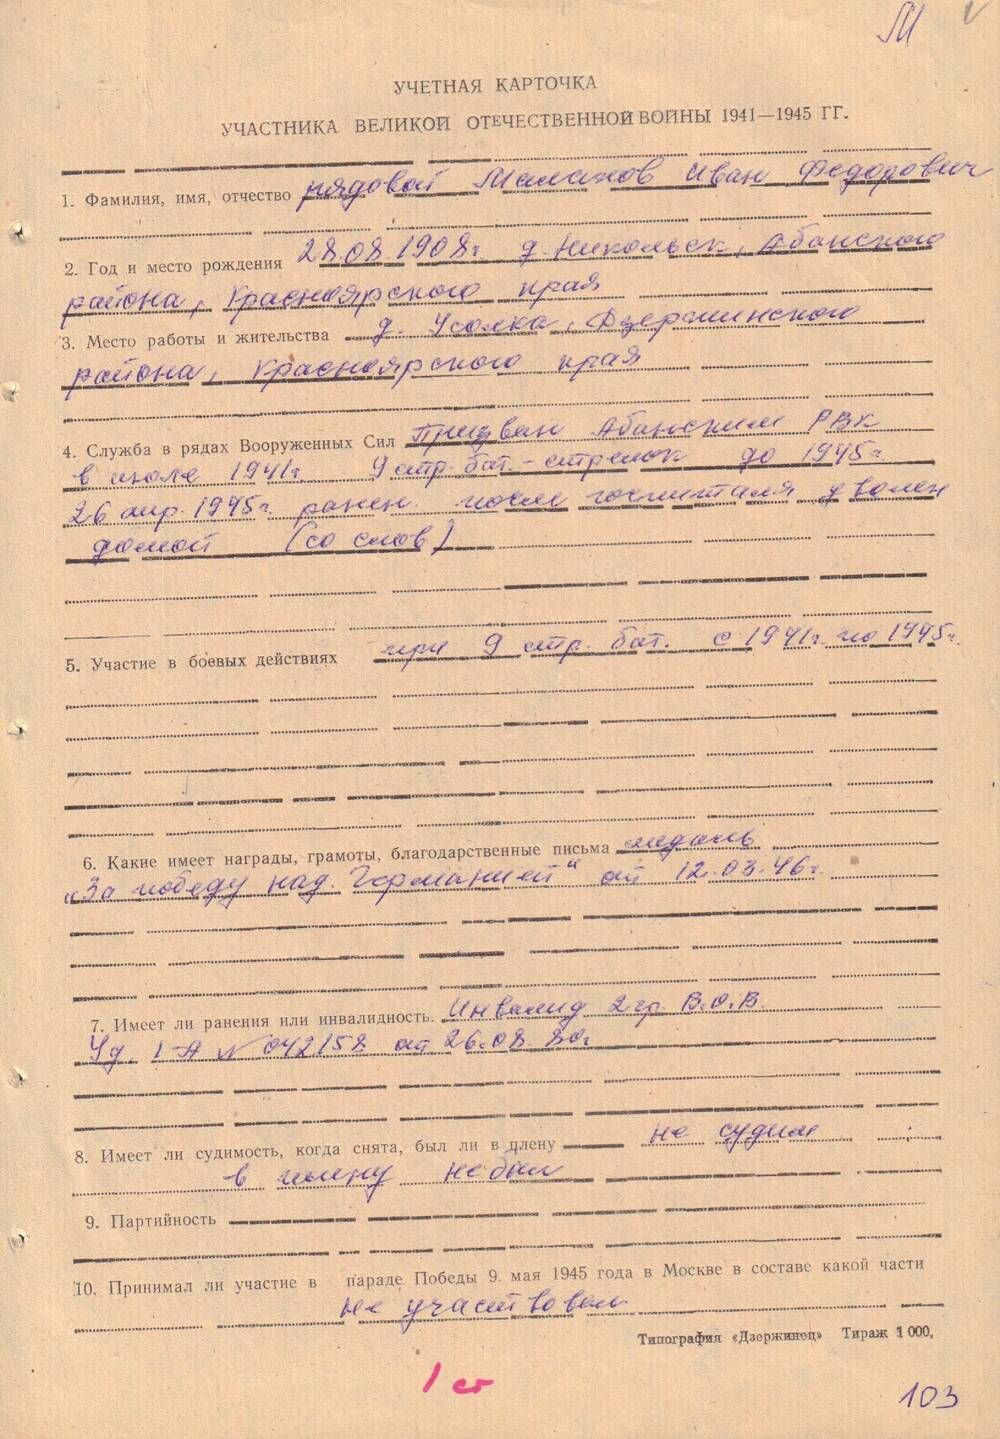 М
УЧЕТНАЯ КАРТОЧКА
УЧАСТНИКА ВЕЛИКОЙ ОТЕЧЕСТВЕННОЙ ВОЙНЫ 1941—1945 ГГ.
1. Фамилия, имя, отчество рядовой Малахов Иван Федорович
2. Год и место рождения 28.08.1908г д. Никольск, Абанского
района, Красноярского края
3. Место работы и жительства д. Усолка, Дзержинского
района, Красноярского края
4. Служба в рядах Вооруженных Сил Призван Абанским РВК
в июле 1941г. 9 стр. бат. - стрелок до 1945г.
26 апр. 1945г ранен. после госпиталя уволен
домой (со слов)
5. Участие в боевых действиях при 9 стр. бат. с 1941г. по 1945г.
6. Какие имеет награды, грамоты, благодарственные письма медаль
„За победу над Германией“ от 12.03.46г.
7. Имеет ли ранения или инвалидность. Инвалид 2 гр. В.О.В.
Уд. 1-А № 042158 от 26.08 80г
8. Имеет ли судимость, когда снята, был ли в плену не судим
в плену не был
9. Партийность
10. Принимал ли участие в параде Победы 9. мая 1945 года в Москве в составе какой части
не участвовал
Типография «Дзержинец» Тираж 1 000.
1 ст
103